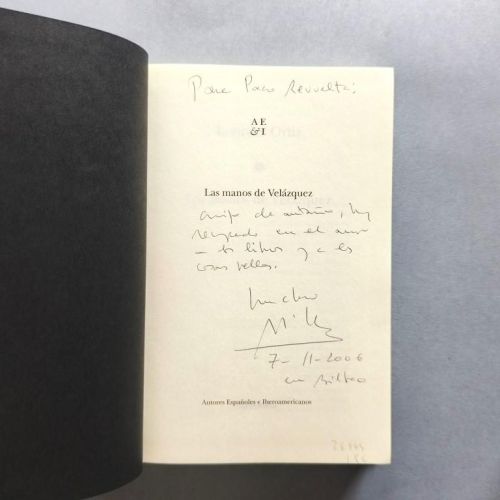 Para Paco Revuelta:
A E
& I
Las manos de Velázquez
amigo de antaño, hoy
en el amor
a los libros y a las
cosas bellas.
7-11-2006
en Bilbao
Autores Españoles e Iberoamericanos